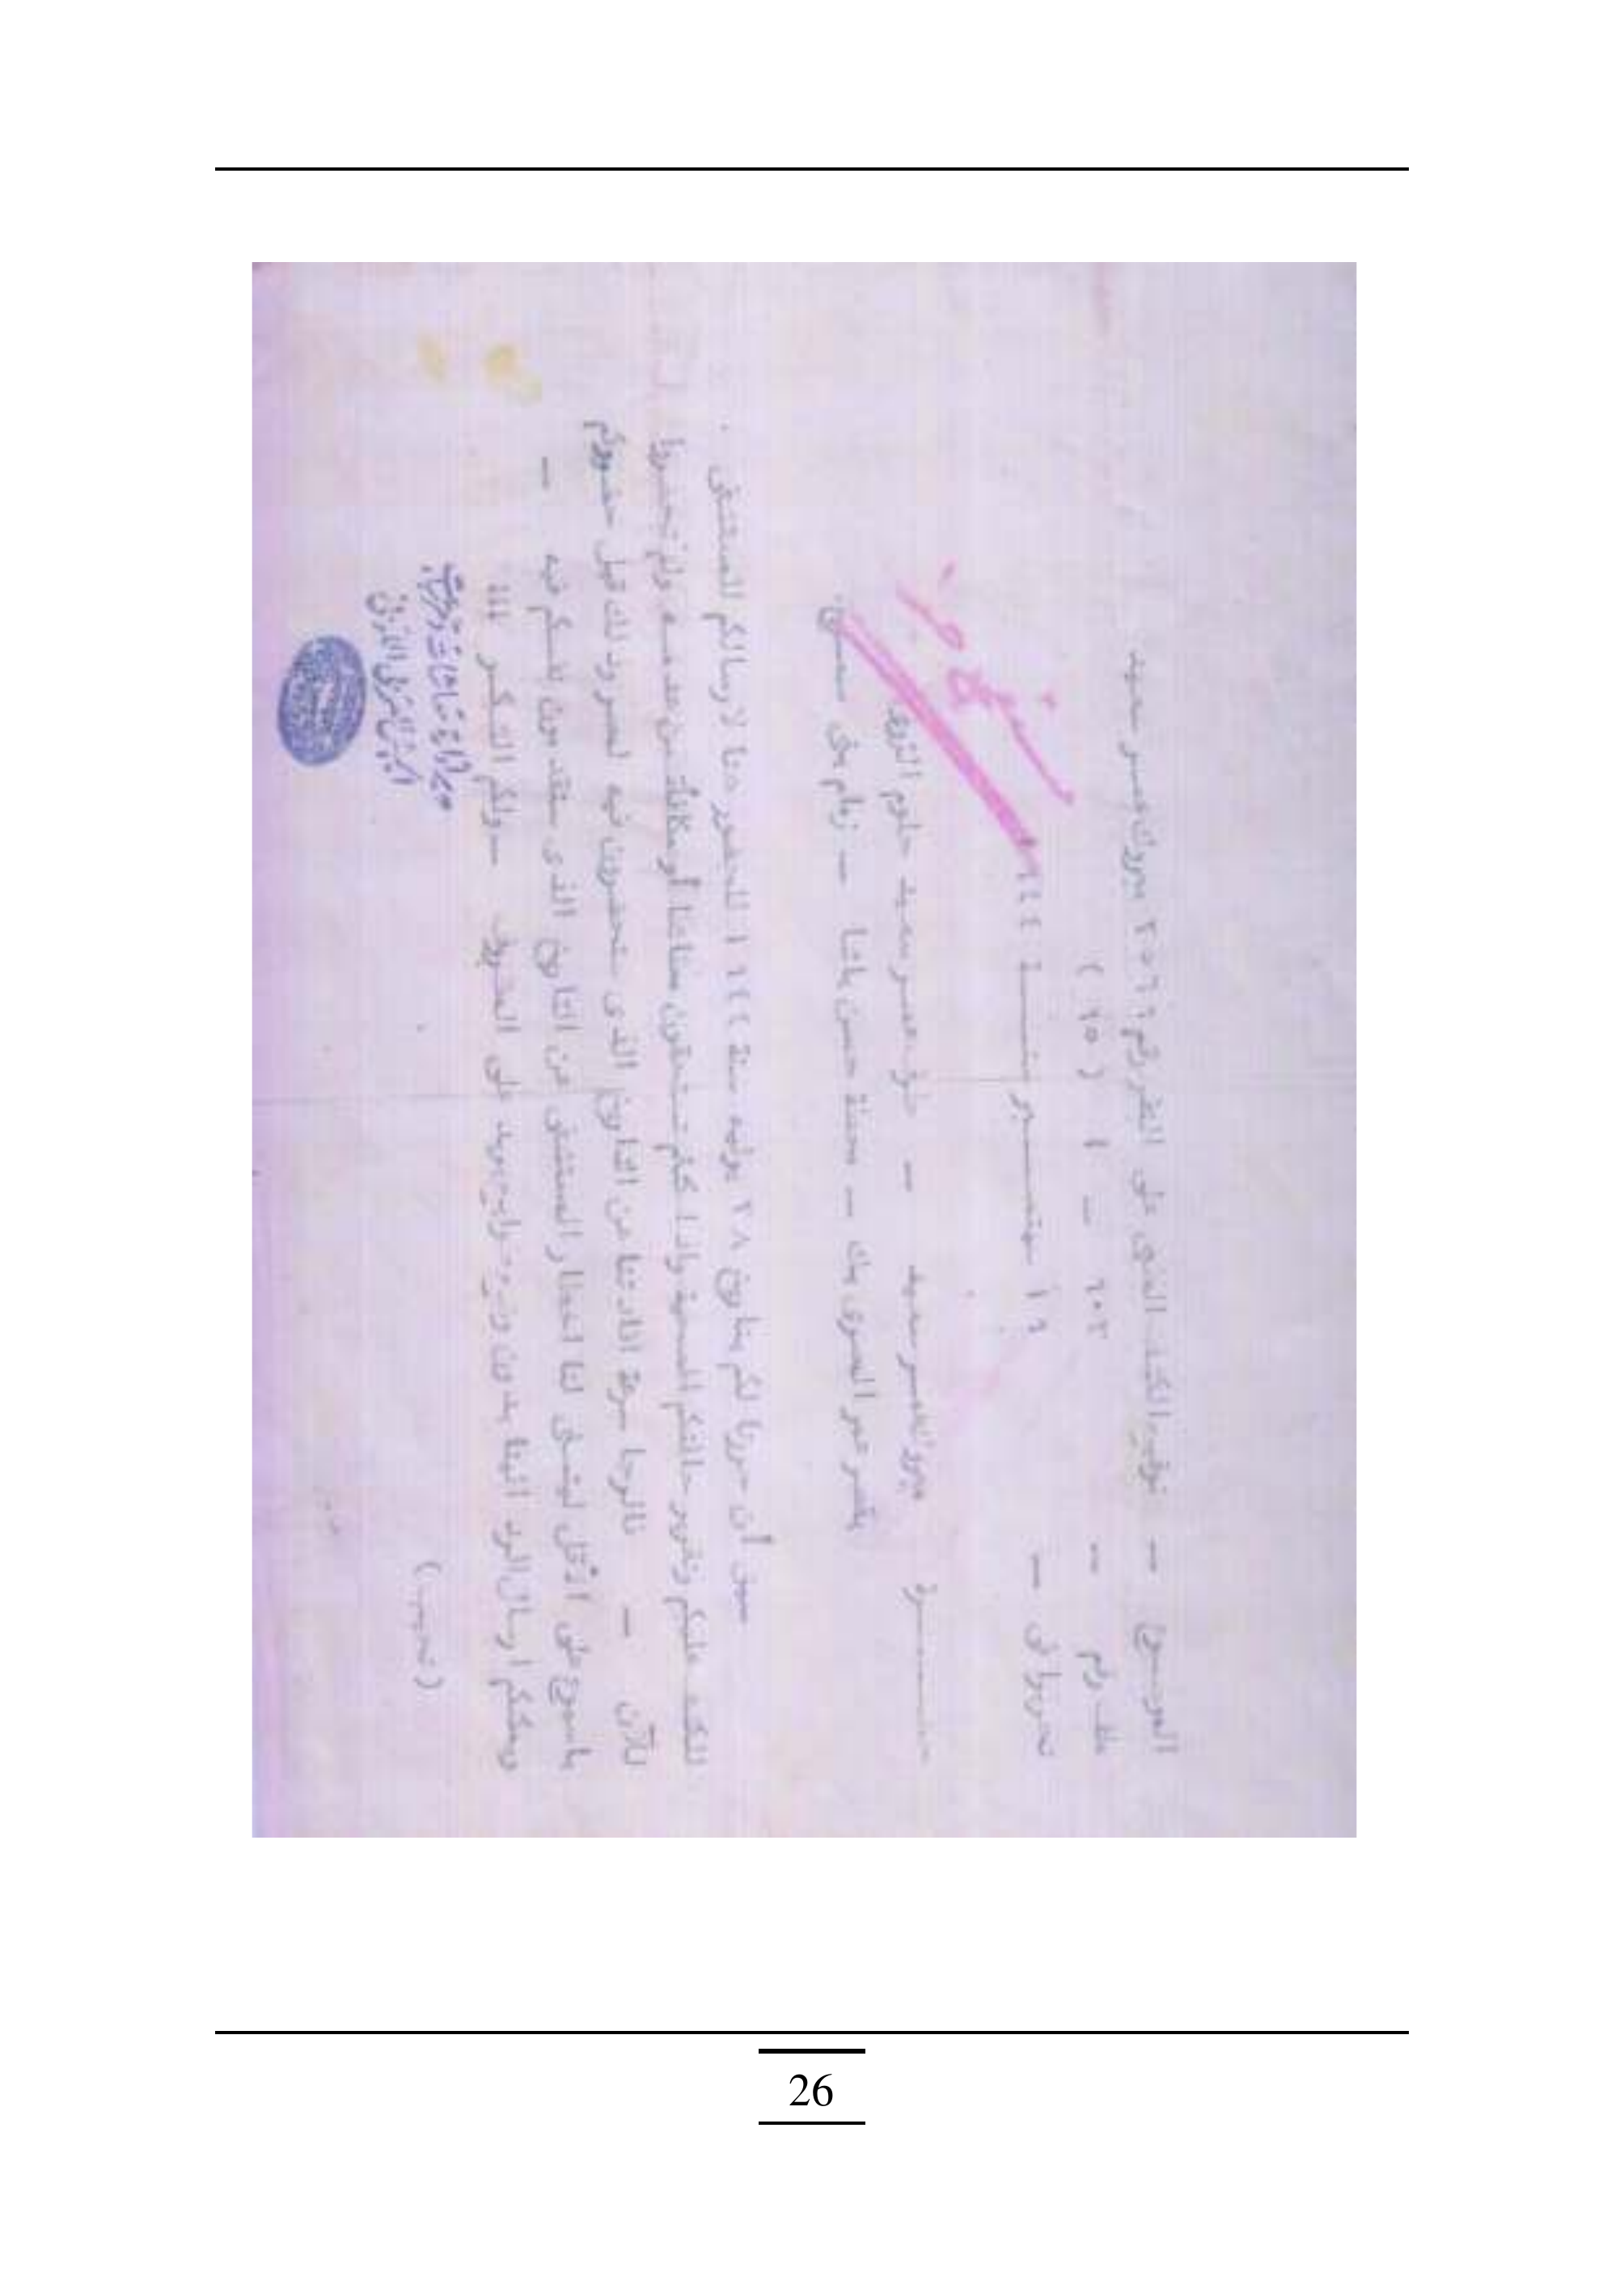 الموضوع — توقيع الكشف الطبى على النفر رقم ٢٥٦٦ مبروك عمر سعيد
ملف رقم — ٦٠٣ — ١ ( ٦٥ )
تحريرا فى — ١٦ سبتمبر سنة ١٩٤٤
حضرة مبروك عمر سعيد — طرف عمر سعيد حلوم
بقصر تمر المصرى بك — محطة حسن باشا — زمام
سبق أن حررنا لكم بتاريخ ٢٨ يوليه سنة ١٩٤٤ للحضور هنا لارسالكم للمستشفى
للكشف عليكم وتقرير حالتكم الصحية واذا كنتم تستحقون معاشا أو مكافأة من عدمه ولم تحضروا
للآن — فالرجا سرعة افادتنا عن التاريخ الذى ستحضرون فيه لمصر وذلك قبل حضوركم
باسبوع على الأقل ليتسنى لنا اخطار المستشفى عن التاريخ الذى ستقدمون للكم فيه —
ويمكنكم ارسال الرد الينا بدون وضع طوابع بريد على المظروف ولكم الشكر ،،،
(نجيب)
26